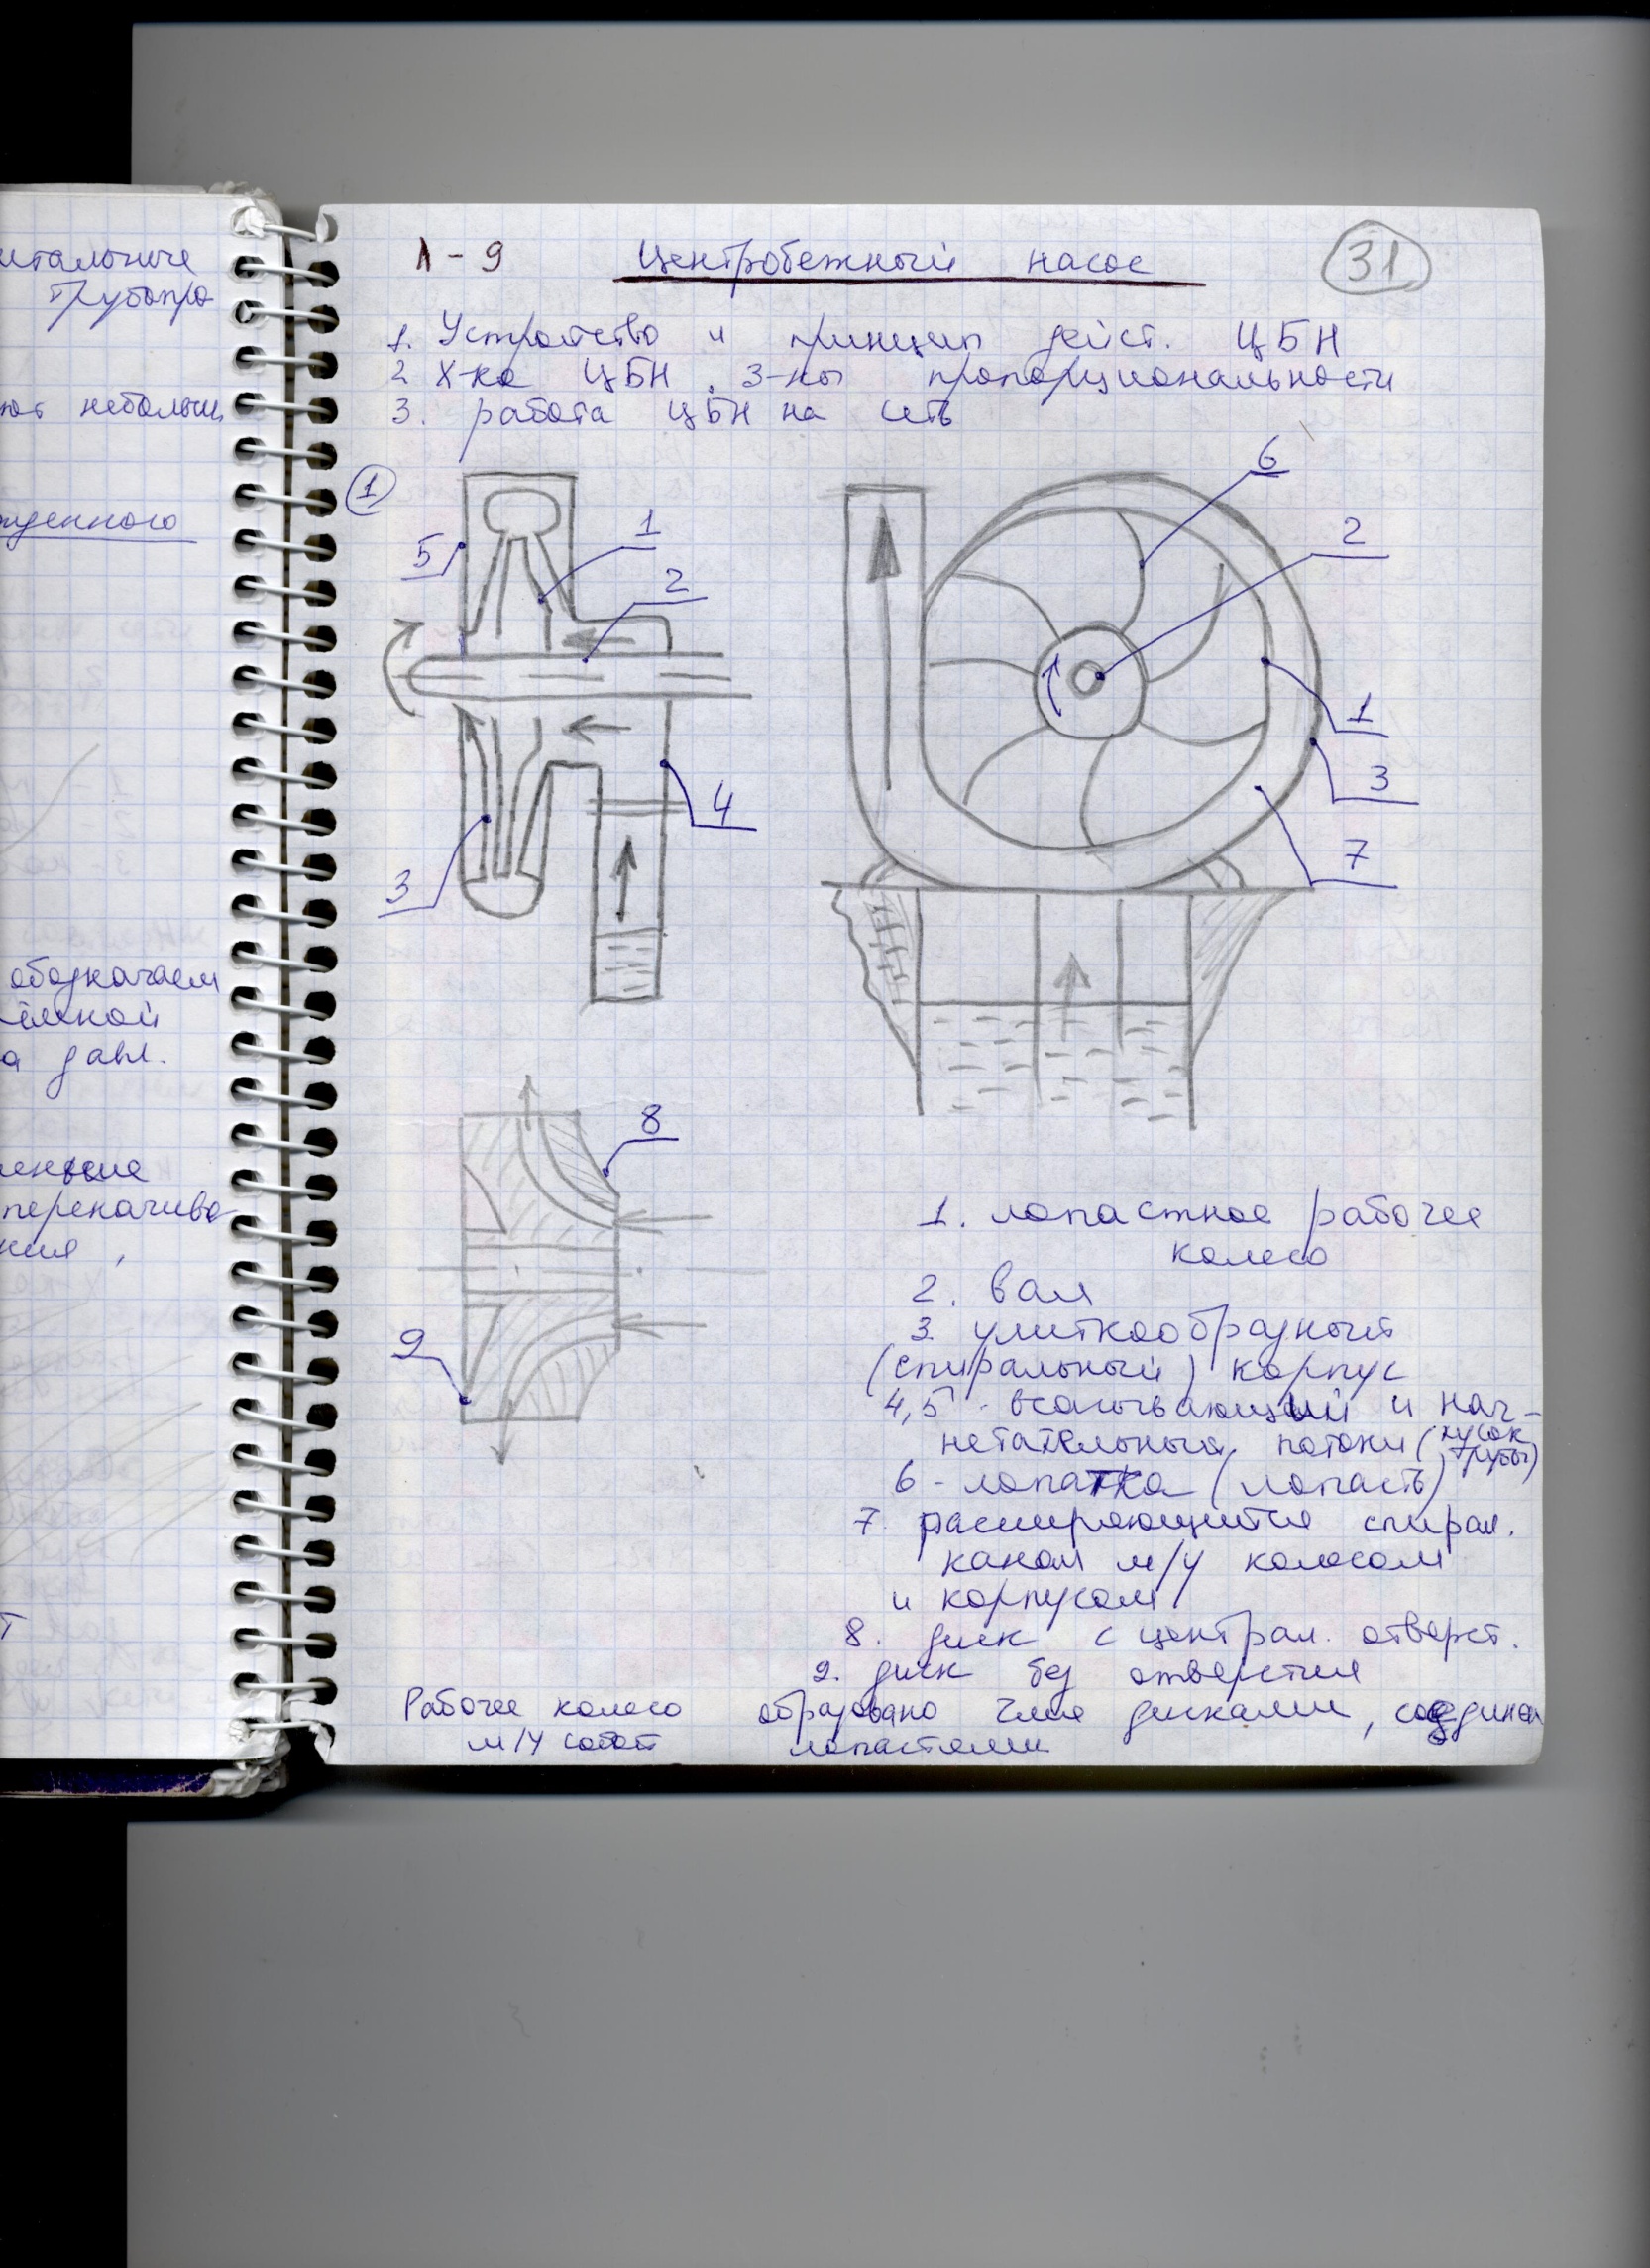 итальные
трубопро
ют небольш
жденного
обозначаем
а давл.
перекачива
ния,
Л-9 Центробежный насос 31
1. Устройство и принцип дейст. ЦБН
2 Х-ка ЦБН. З-ны пропорциональности
3. работа ЦБН на сеть
1
6
1
2
5
2
1
3
4
7
3
8
9
1. лопастное рабочее
колесо
2. вал
3. улиткообразный
(спиральный) корпус
4,5 - всасывающий и наг-
нетательный, потоки (кусок
трубы)
6 - лопатка (лопасть)
7. расширяющийся спирал.
канал м/у колесом
и корпусом
8. диск с централ. отверст.
9. диск без отверстия
Рабочее колесо образовано 2мя дисками, соединен
м/у собой лопастями